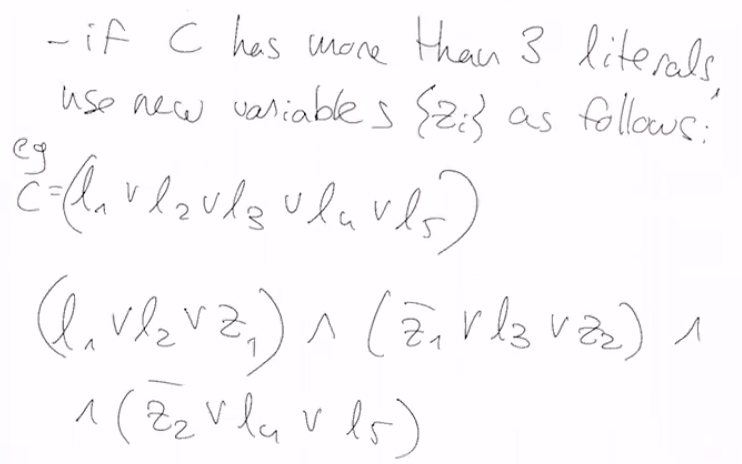 - if C has more than 3 literals,
use new variables {zᵢ} as follows:
eg
C = (l₁ ∨ l₂ ∨ l₃ ∨ l₄ ∨ l₅)
(l₁ ∨ l₂ ∨ z₁) ∧ (z̄₁ ∨ l₃ ∨ z₂) ∧
∧ (z̄₂ ∨ l₄ ∨ l₅)